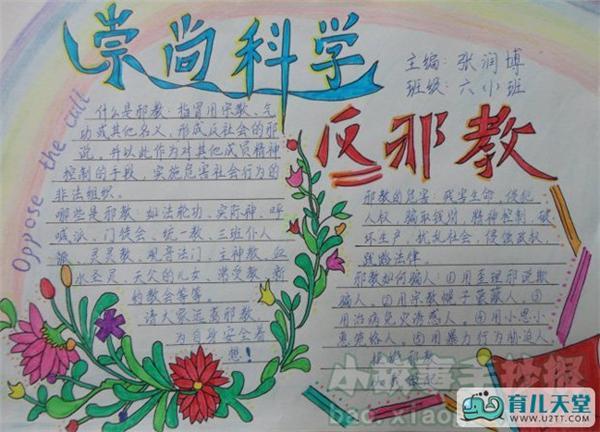 崇尚科学
主编：张润博
班级：六小班
反邪教
Oppose the call
什么是邪教：指冒用宗教、气
功或其他名义，形成反社会的邪
说，并以此作为对其他成员精神
控制的手段，实施危害社会行为的
非法组织。
哪些是邪教 如法轮功、实际神、呼
喊派、门徒会、统一教、三班仆人
派、灵灵教、观音法门、主神教、血
水圣灵、天父的儿女、
的教会等等。
请大家远离邪教
为自身安全着
想！
邪教的危害：残害生命、侵犯
人权、骗取钱财、精神控制、破
坏生产、扰乱社会、侵蚀政权、
践踏法律。
邪教如何骗人：①用歪理邪说欺
骗人。②用宗教幌子蒙蔽人。③
用治病免灾诱惑人。④用小恩小
惠拢络人。⑤用暴力行为胁迫人
拒绝邪教
小孩手抄报
育儿天堂
www.u2tt.com